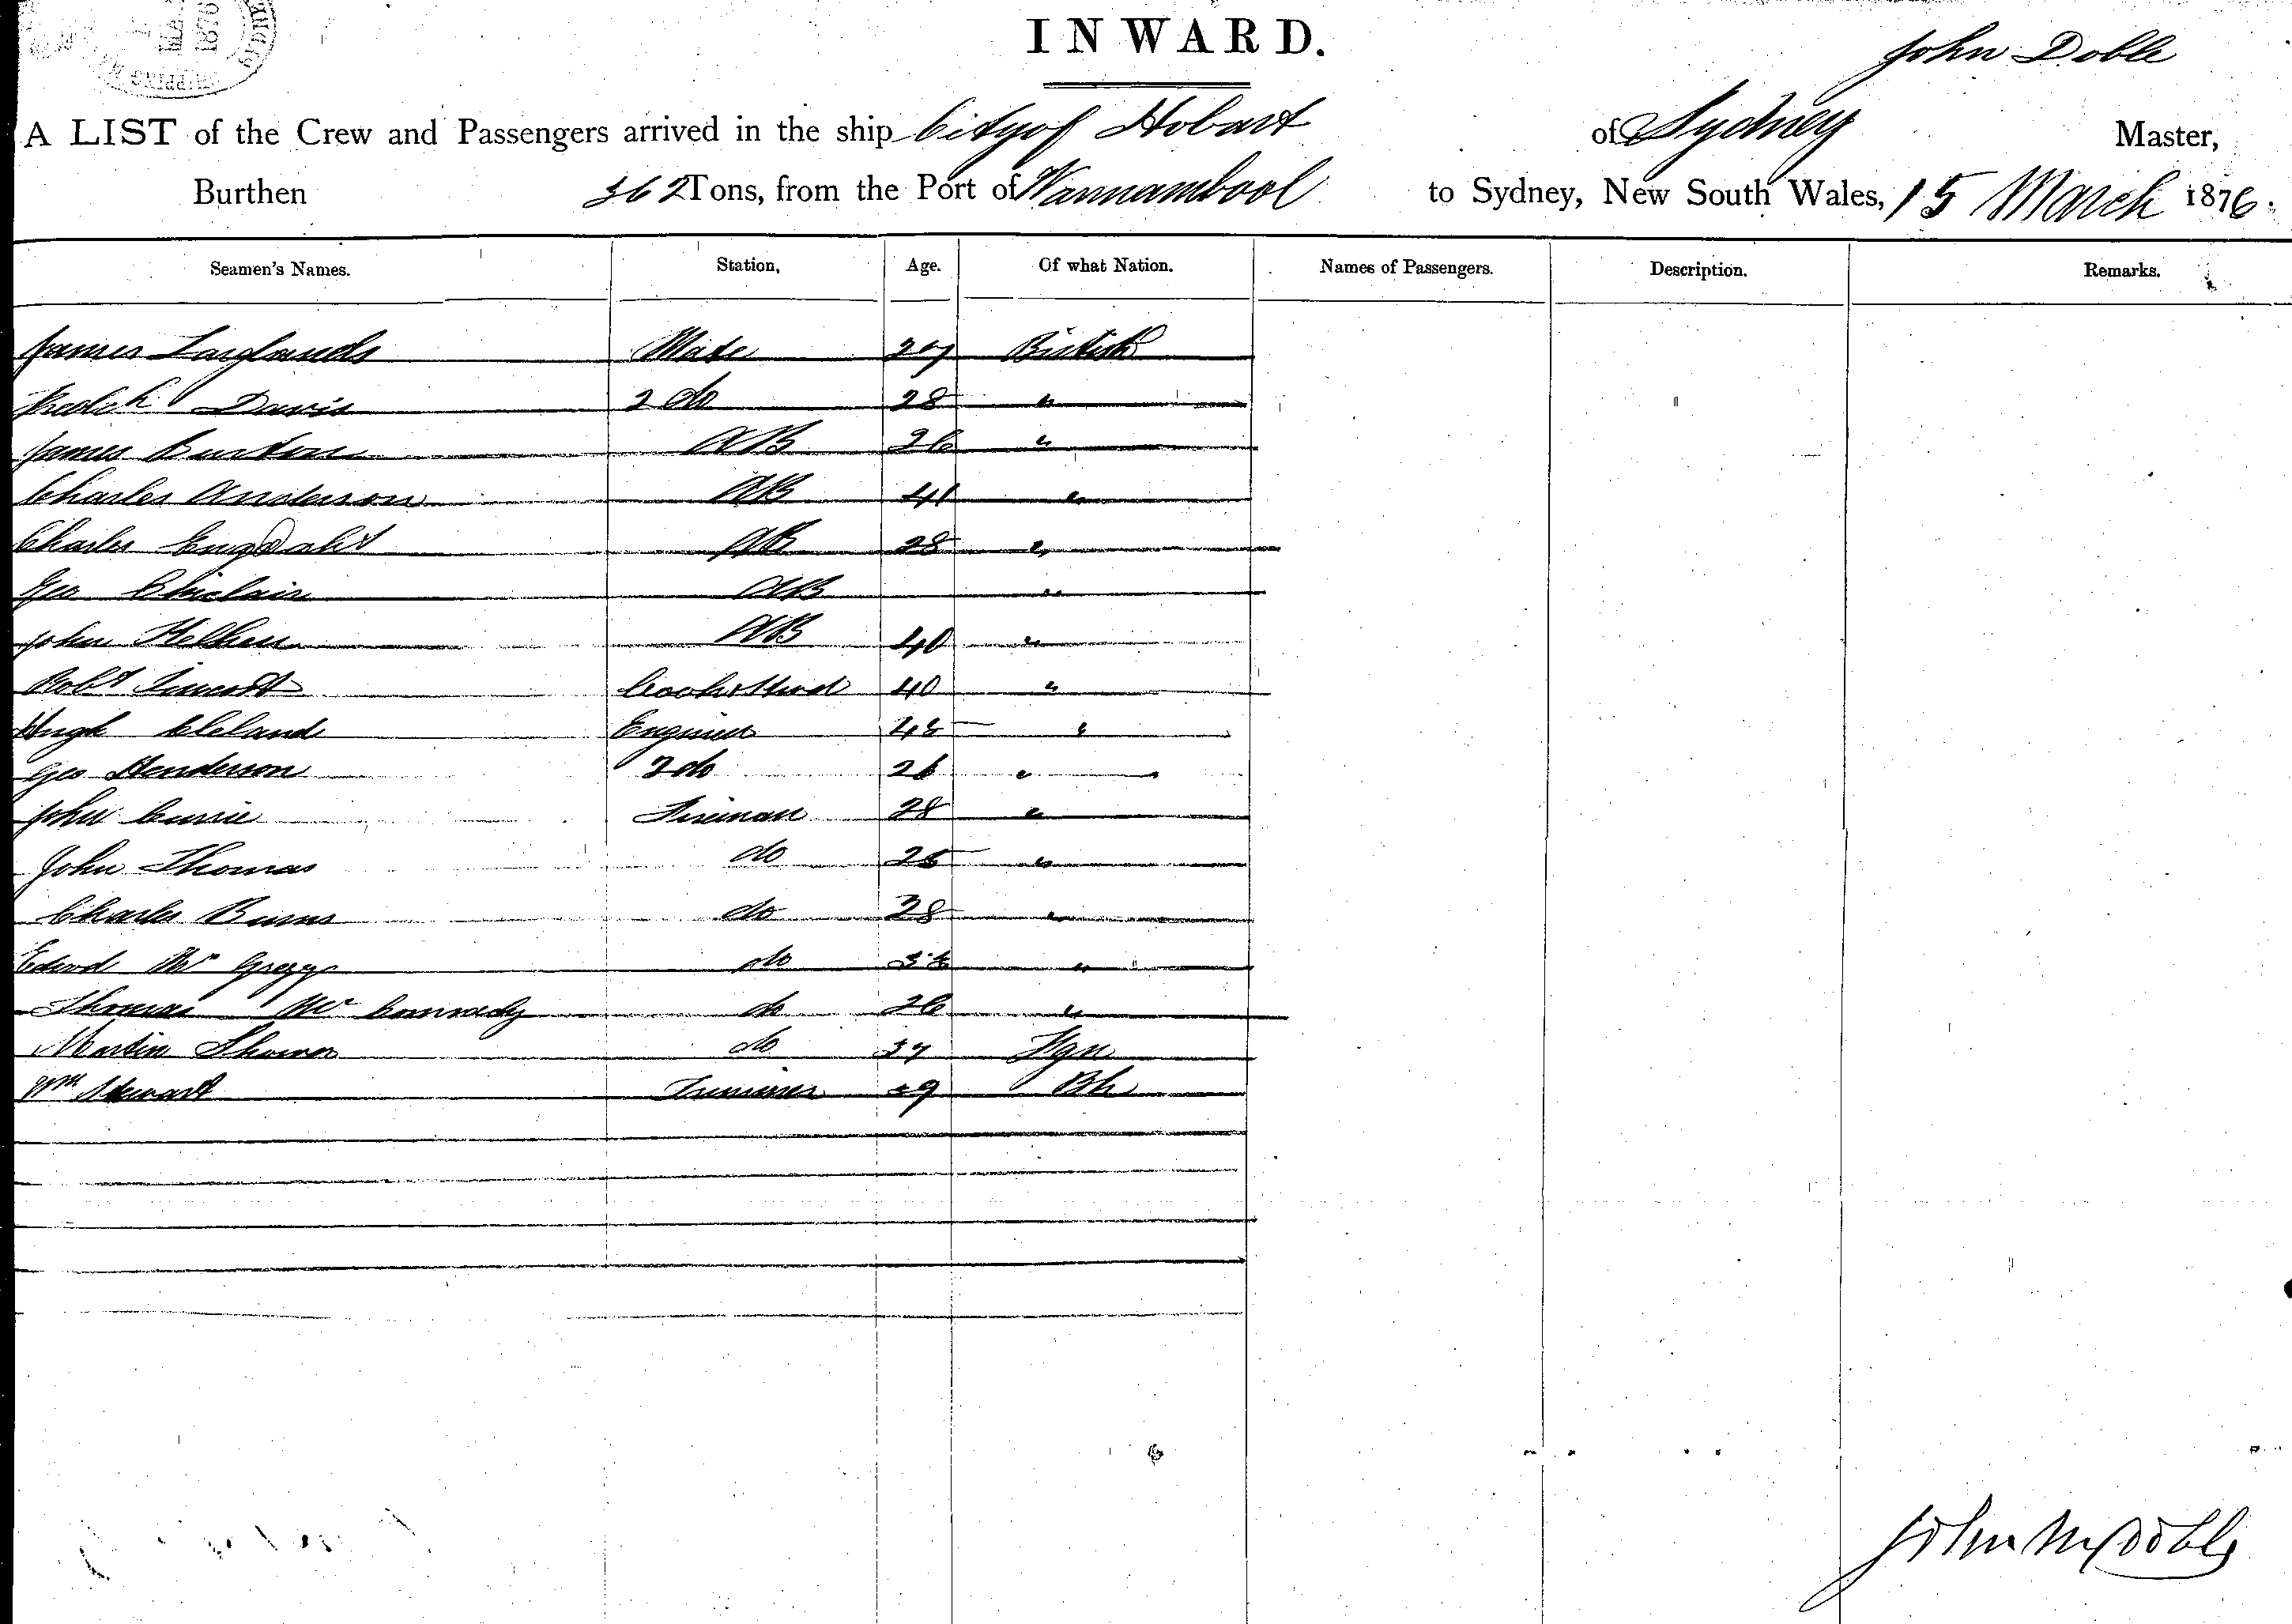 INWARD.
John Doble
A LIST of the Crew and Passengers arrived in the ship City of Hobart of Sydney Master,
Burthen 362 Tons, from the Port of Warrnambool to Sydney, New South Wales, 15 March 1876.
Seamen's Names. Station, Age. Of what Nation. Names of Passengers. Description. Remarks.
James Langlands Mate 27 British
Fredck Davis 2 do 28 "
James Burton AB 26 "
Charles Anderson AB 41 "
Charles Engdahl AB 28 "
Geo Sinclair AB "
John AB 40 "
Robt 40 "
Hugh Cleland Engineer 48 "
Geo Henderson 2 do 26 "
John Currie Fireman 28 "
John Thomas do 25 "
Charles Burns do 28 "
Edwd Mc Gregg do "
Thomas Mc Connedy do 26 "
Martin Thomas do 37 Fgn
Wm Stewart Trimmer 29 Bh
John M Doble